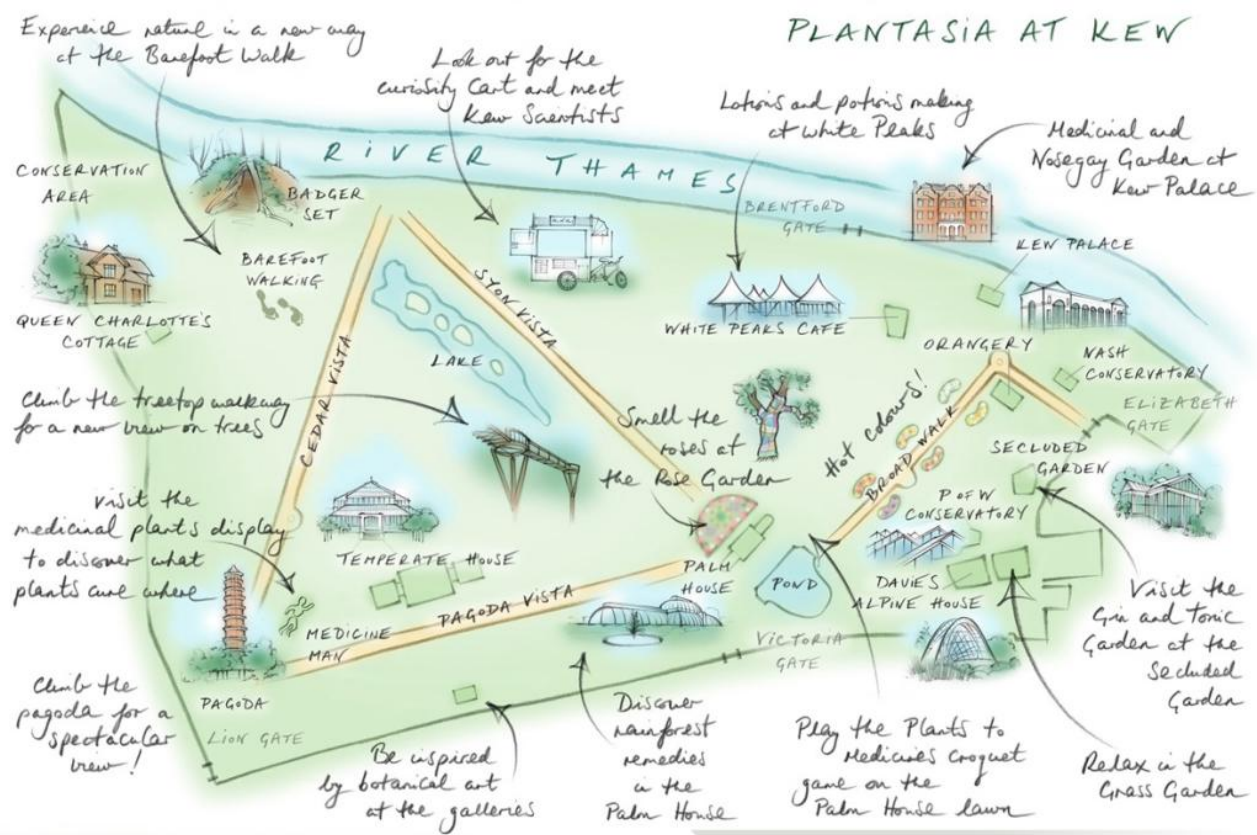 PLANTASIA AT KEW
Experience natural in a new way
at the Barefoot Walk
Look out for the
curiosity cart and meet
Kew Scientists
Lotions and potions making
at White Peaks
Medicinal and
Nosegay Garden at
Kew Palace
RIVER THAMES
CONSERVATION
AREA
BADGER
SET
BRENTFORD
GATE
KEW PALACE
BAREFOOT
WALKING
QUEEN CHARLOTTE'S
COTTAGE
SYON VISTA
WHITE PEAKS CAFE
ORANGERY
NASH
CONSERVATORY
LAKE
CEDAR VISTA
ELIZABETH
GATE
Climb the treetop walkway
for a new view on trees
Smell the
roses at
the Rose Garden
Hot colours!
BROAD WALK
SECLUDED
GARDEN
Visit the
medicinal plants display
to discover what
plants cure where
P OF W
CONSERVATORY
TEMPERATE HOUSE
PALM
HOUSE
POND
DAVIES
ALPINE HOUSE
PAGODA VISTA
MEDICINE
MAN
VICTORIA
GATE
Visit the
Gin and Tonic
Garden at the
Secluded
Garden
PAGODA
LION GATE
Climb the
pagoda for a
spectacular
view!
Be inspired
by botanical art
at the galleries
Discover
rainforest
remedies
in the
Palm House
Play the Plants to
Medicines croquet
game on the
Palm House lawn
Relax in the
Grass Garden